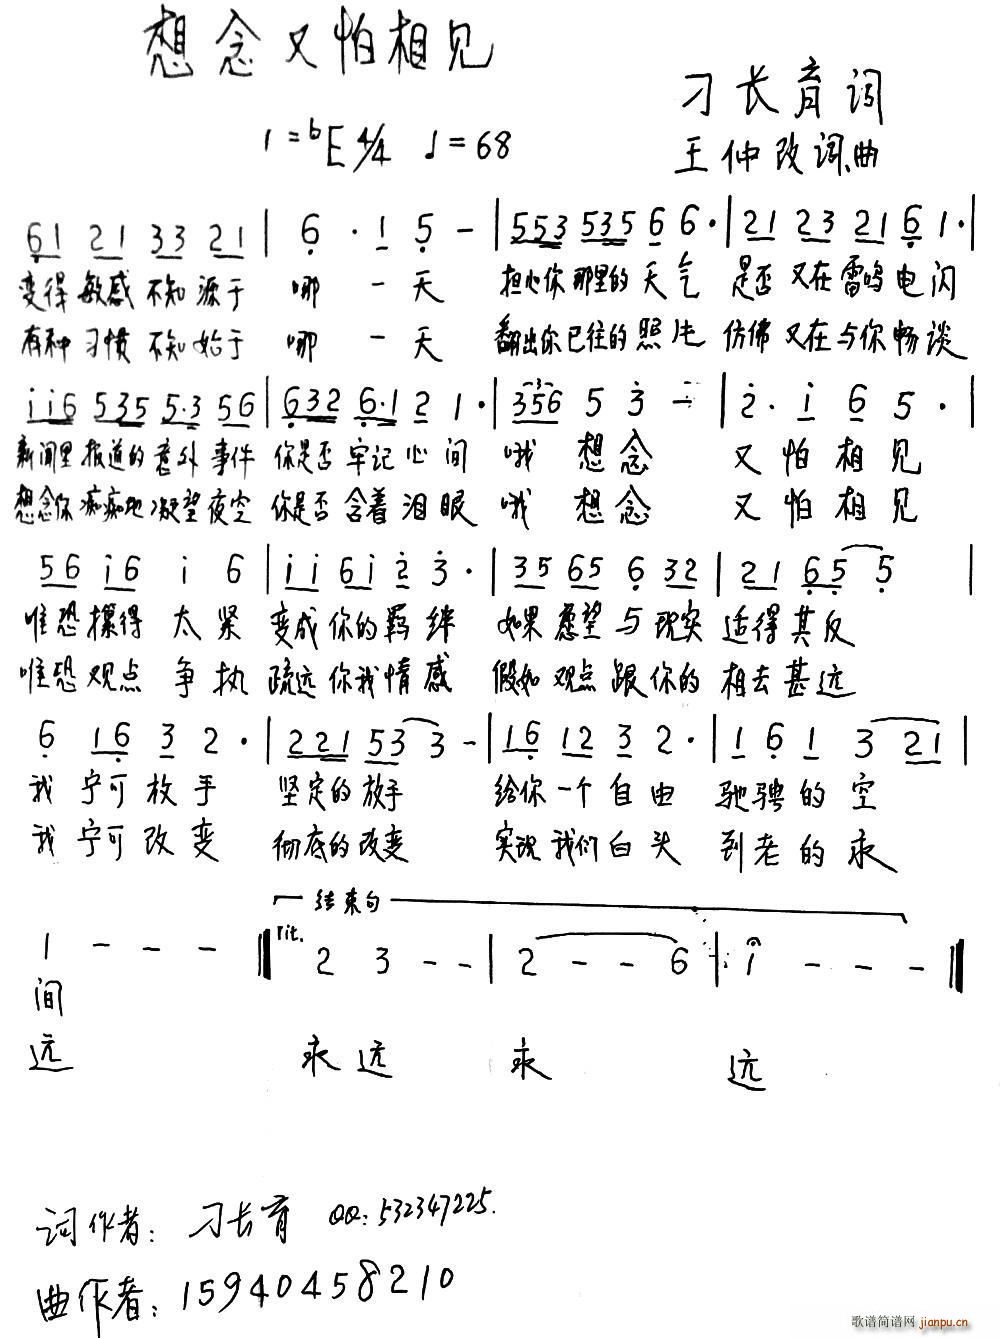 想念又怕相见
刁长育词
1=♭E 4/4 ♩=68
王仲改词、曲
61 21 33 21 | 6 · 1 5 - | 553 535 6 6 · | 21 23 21 6 1 · |
变得 敏感 不知 源于 哪 一 天 担心你 那里的 天 气 是否 又在 雷鸣 电 闪
有种 习惯 不知 始于 哪 一 天 翻出你 已往的 照 片 仿佛 又在 与你 畅 谈
i i 6 535 5·3 56 | 632 6·1 2 1 · | 356 5 3 - | 2 · i 6 5 · |
新闻里 报道的 意外 事件 你是否 牢记 心 间 哦 想 念 又 怕 相 见
想念你 痴痴地 凝望 夜空 你是否 含着 泪 眼 哦 想 念 又 怕 相 见
56 i6 i 6 | i i 6i 2 3 · | 35 65 6 32 | 21 65 5 |
唯恐 攥得 太 紧 变成 你的 羁 绊 如果 愿望 与 现实 适得 其 反
唯恐 观点 争 执 疏远 你我 情 感 假如 观点 跟 你的 相去 甚 远
6 16 3 2 · | 2 21 53 3 - | 16 12 3 2 · | 1 6 1 3 21 |
我 宁可 放 手 坚定的 放手 给你 一个 自 由 驰 骋 的 空
我 宁可 改 变 彻底的 改变 实现 我们 白 头 到 老 的 永
结束句
1 - - - ‖ rit. 2 3 - - | 2 - - 6 | i - - - ‖
间
远 永 远 永 远
词作者：刁长育 QQ:532347225.
曲作者：15940458210
歌谱简谱网 jianpu.cn